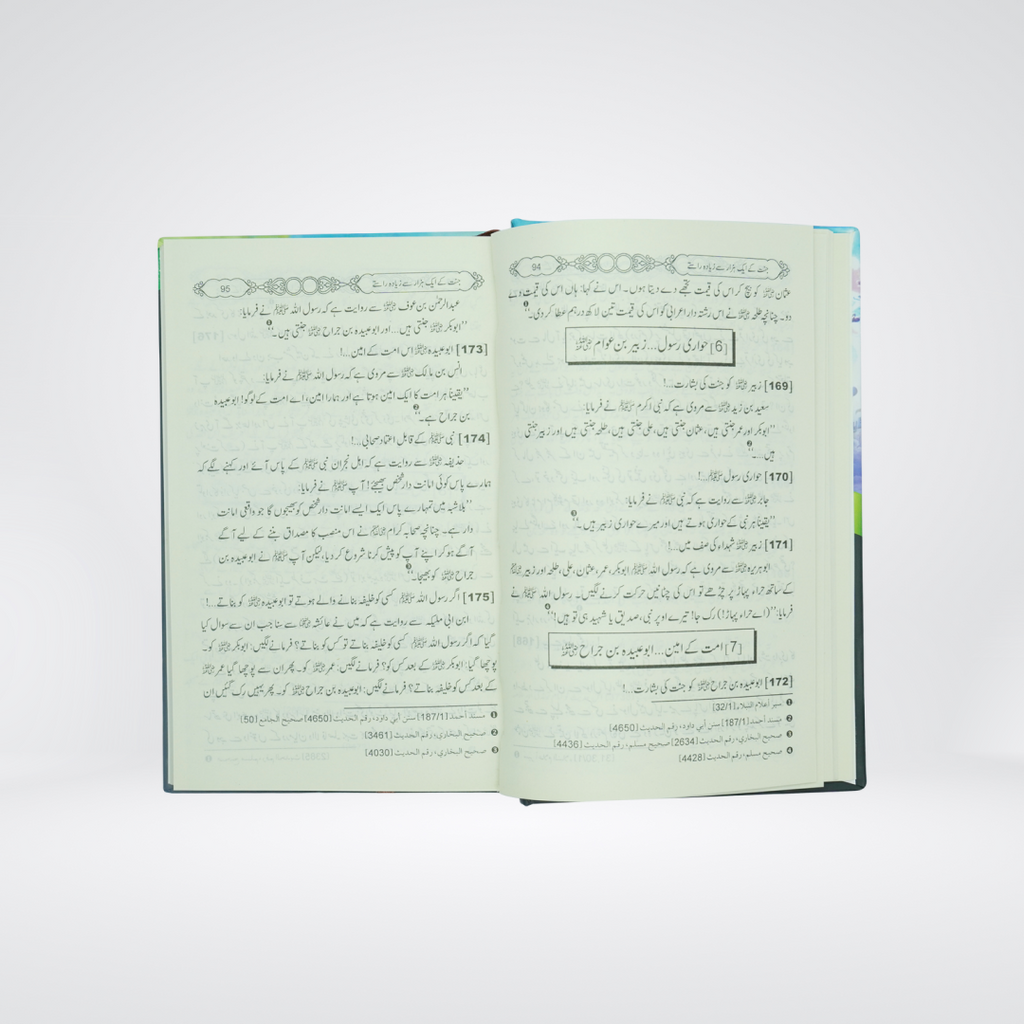 جنت کے ایک ہزار سے زیادہ راستے
94
عثمان رضی اللہ عنہ کو بیچ کر اس کی قیمت تجھے دے دیتا ہوں۔ اس نے کہا: ہاں اس کی قیمت دے
دو۔ چنانچہ طلحہ رضی اللہ عنہ نے اس رشتہ دار اعرابی کو اس کی قیمت تین لاکھ درہم عطا کر دی۔“ ❶
[6] حواری رسول... زبیر بن عوام رضی اللہ عنہ
[169] زبیر رضی اللہ عنہ کو جنت کی بشارت...!
سعید بن زید رضی اللہ عنہ سے مروی ہے کہ نبی اکرم ﷺ نے فرمایا:
”ابوبکر اور عمر جنتی ہیں، عثمان جنتی ہیں، علی جنتی ہیں، طلحہ جنتی ہیں اور زبیر جنتی
ہیں...“ ❷
[170] حواری رسول ﷺ...!
جابر رضی اللہ عنہ سے روایت ہے کہ نبی ﷺ نے فرمایا:
”یقیناً ہر نبی کے حواری ہوتے ہیں اور میرے حواری زبیر ہیں۔“ ❸
[171] زبیر رضی اللہ عنہ شہداء کی صف میں...!
ابوہریرہ رضی اللہ عنہ سے مروی ہے کہ رسول اللہ ﷺ ابوبکر، عمر، عثمان، علی، طلحہ اور زبیر رضی اللہ عنہم
کے ساتھ حراء پہاڑ پر چڑھے تو اس کی چٹانیں حرکت کرنے لگیں۔ رسول اللہ ﷺ نے
فرمایا: ”(اے حراء پہاڑ!) رک جا! تیرے اوپر نبی، صدیق یا شہید ہی تو ہیں!“ ❹
[7] امت کے امین... ابوعبیدہ بن جراح رضی اللہ عنہ
[172] ابوعبیدہ بن جراح رضی اللہ عنہ کو جنت کی بشارت...!
❶ سير أعلام النبلاء [32/1]
❷ مسند أحمد [187/1] سنن أبي داود، رقم الحديث [4650]
❸ صحيح البخاري، رقم الحديث [2634] صحيح مسلم، رقم الحديث [4436]
❹ صحيح مسلم، رقم الحديث [4428]
جنت کے ایک ہزار سے زیادہ راستے
95
عبدالرحمٰن بن عوف رضی اللہ عنہ سے روایت ہے کہ رسول اللہ ﷺ نے فرمایا:
”ابوبکر رضی اللہ عنہ جنتی ہیں... اور ابوعبیدہ بن جراح جنتی ہیں۔“ ❶
[173] ابوعبیدہ رضی اللہ عنہ اس امت کے امین...!
انس بن مالک رضی اللہ عنہ سے مروی ہے کہ رسول اللہ ﷺ نے فرمایا:
”یقیناً ہر امت کا ایک امین ہوتا ہے اور ہمارا امین، اے امت کے لوگو! ابوعبیدہ
بن جراح ہے۔“ ❷
[174] نبی ﷺ کے قابل اعتماد صحابی...!
حذیفہ رضی اللہ عنہ سے روایت ہے کہ اہل نجران نبی ﷺ کے پاس آئے اور کہنے لگے کہ
ہمارے پاس کوئی امانت دار شخص بھیجئے! آپ ﷺ نے فرمایا:
”بلاشبہ میں تمہارے پاس ایک ایسے امانت دار شخص کو بھیجوں گا جو واقعی امانت
دار ہے۔ چنانچہ صحابہ کرام رضی اللہ عنہم نے اس منصب کا مصداق بننے کے لیے آگے
آگے ہو کر اپنے آپ کو پیش کرنا شروع کر دیا، لیکن آپ ﷺ نے ابوعبیدہ بن
جراح رضی اللہ عنہ کو بھیجا۔“ ❸
[175] اگر رسول اللہ ﷺ کسی کو خلیفہ بنانے والے ہوتے تو ابوعبیدہ رضی اللہ عنہ کو بناتے...!
ابن ابی ملیکہ سے روایت ہے کہ میں نے عائشہ رضی اللہ عنہا سے سنا جب ان سے سوال کیا
گیا کہ اگر رسول اللہ ﷺ کسی کو خلیفہ بناتے تو کس کو بناتے؟ فرمانے لگیں: ابوبکر رضی اللہ عنہ کو۔
پوچھا گیا: ابوبکر رضی اللہ عنہ کے بعد کس کو؟ فرمانے لگیں: عمر رضی اللہ عنہ کو۔ پھر ان سے پوچھا گیا عمر رضی اللہ عنہ
کے بعد کس کو خلیفہ بناتے؟ فرمانے لگیں: ابوعبیدہ بن جراح رضی اللہ عنہ کو۔ پھر یہیں رک گئیں ان
❶ مسند أحمد [187/1] سنن أبي داود، رقم الحديث [4650] صحيح الجامع [50]
❷ صحيح البخاري، رقم الحديث [3461]
❸ صحيح البخاري، رقم الحديث [4030]